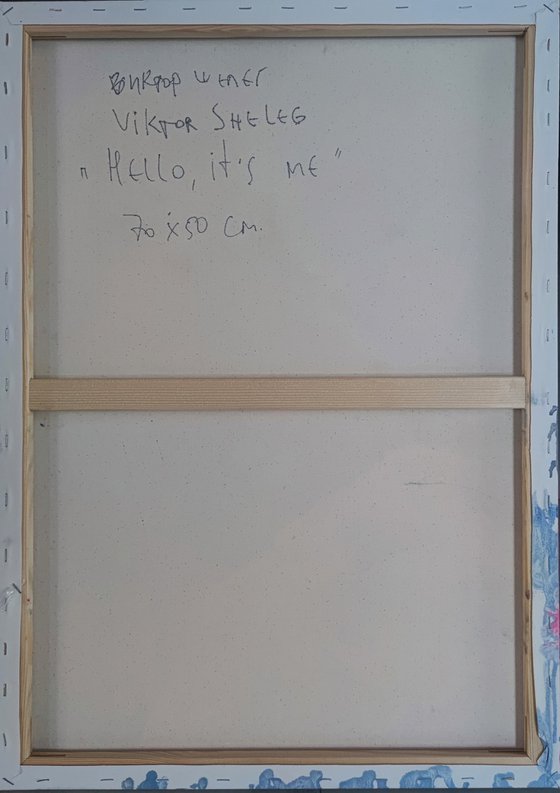 Виктор Шелег
Viktor Sheleg
"Hello, it's me"
70x50 cm.